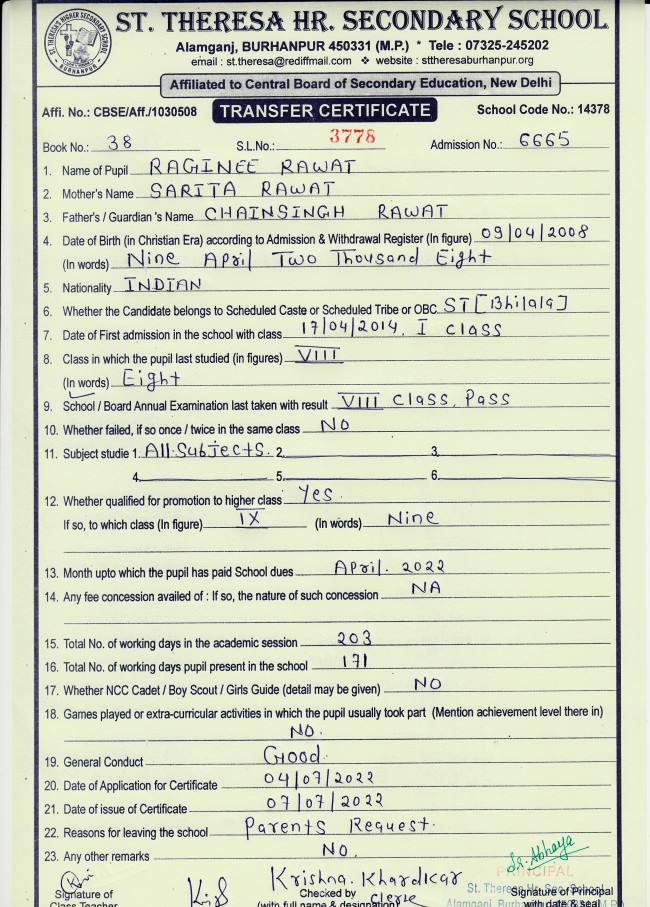 ST. THERESA'S HIGHER SECONDARY SCHOOL
BURHANPUR
ST. THERESA HR. SECONDARY SCHOOL
Alamganj, BURHANPUR 450331 (M.P.) * Tele : 07325-245202
email : st.theresa@rediffmail.com ❖ website : sttheresaburhanpur.org
Affiliated to Central Board of Secondary Education, New Delhi
Affi. No.: CBSE/Aff./1030508 TRANSFER CERTIFICATE School Code No.: 14378
Book No.: 38 S.L.No.: 3778 Admission No.: 6665
1. Name of Pupil RAGINEE RAWAT
2. Mother's Name SARITA RAWAT
3. Father's / Guardian 's Name CHAINSINGH RAWAT
4. Date of Birth (in Christian Era) according to Admission & Withdrawal Register (In figure) 09/04/2008
(In words) Nine April Two Thousand Eight
5. Nationality INDIAN
6. Whether the Candidate belongs to Scheduled Caste or Scheduled Tribe or OBC ST [Bhilala]
7. Date of First admission in the school with class 17/04/2014, I class
8. Class in which the pupil last studied (in figures) VIII
(In words) Eight
9. School / Board Annual Examination last taken with result VIII class, Pass
10. Whether failed, if so once / twice in the same class NO
11. Subject studie 1. All Subjects. 2. 3.
4. 5. 6.
12. Whether qualified for promotion to higher class Yes
If so, to which class (In figure) IX (In words) Nine
13. Month upto which the pupil has paid School dues April. 2022
14. Any fee concession availed of : If so, the nature of such concession NA
15. Total No. of working days in the academic session 203
16. Total No. of working days pupil present in the school 171
17. Whether NCC Cadet / Boy Scout / Girls Guide (detail may be given) NO
18. Games played or extra-curricular activities in which the pupil usually took part (Mention achievement level there in)
NO.
19. General Conduct Good
20. Date of Application for Certificate 04/07/2022
21. Date of issue of Certificate 07/07/2022
22. Reasons for leaving the school Parents Request.
23. Any other remarks NO.
Sr. Abhaya
PRINCIPAL
Krishna. Khardkar
St. Theresa Hr. Sec. School
Signature of Checked by Clerk Signature of Principal
Class Teacher (with full name & designation) with date & seal